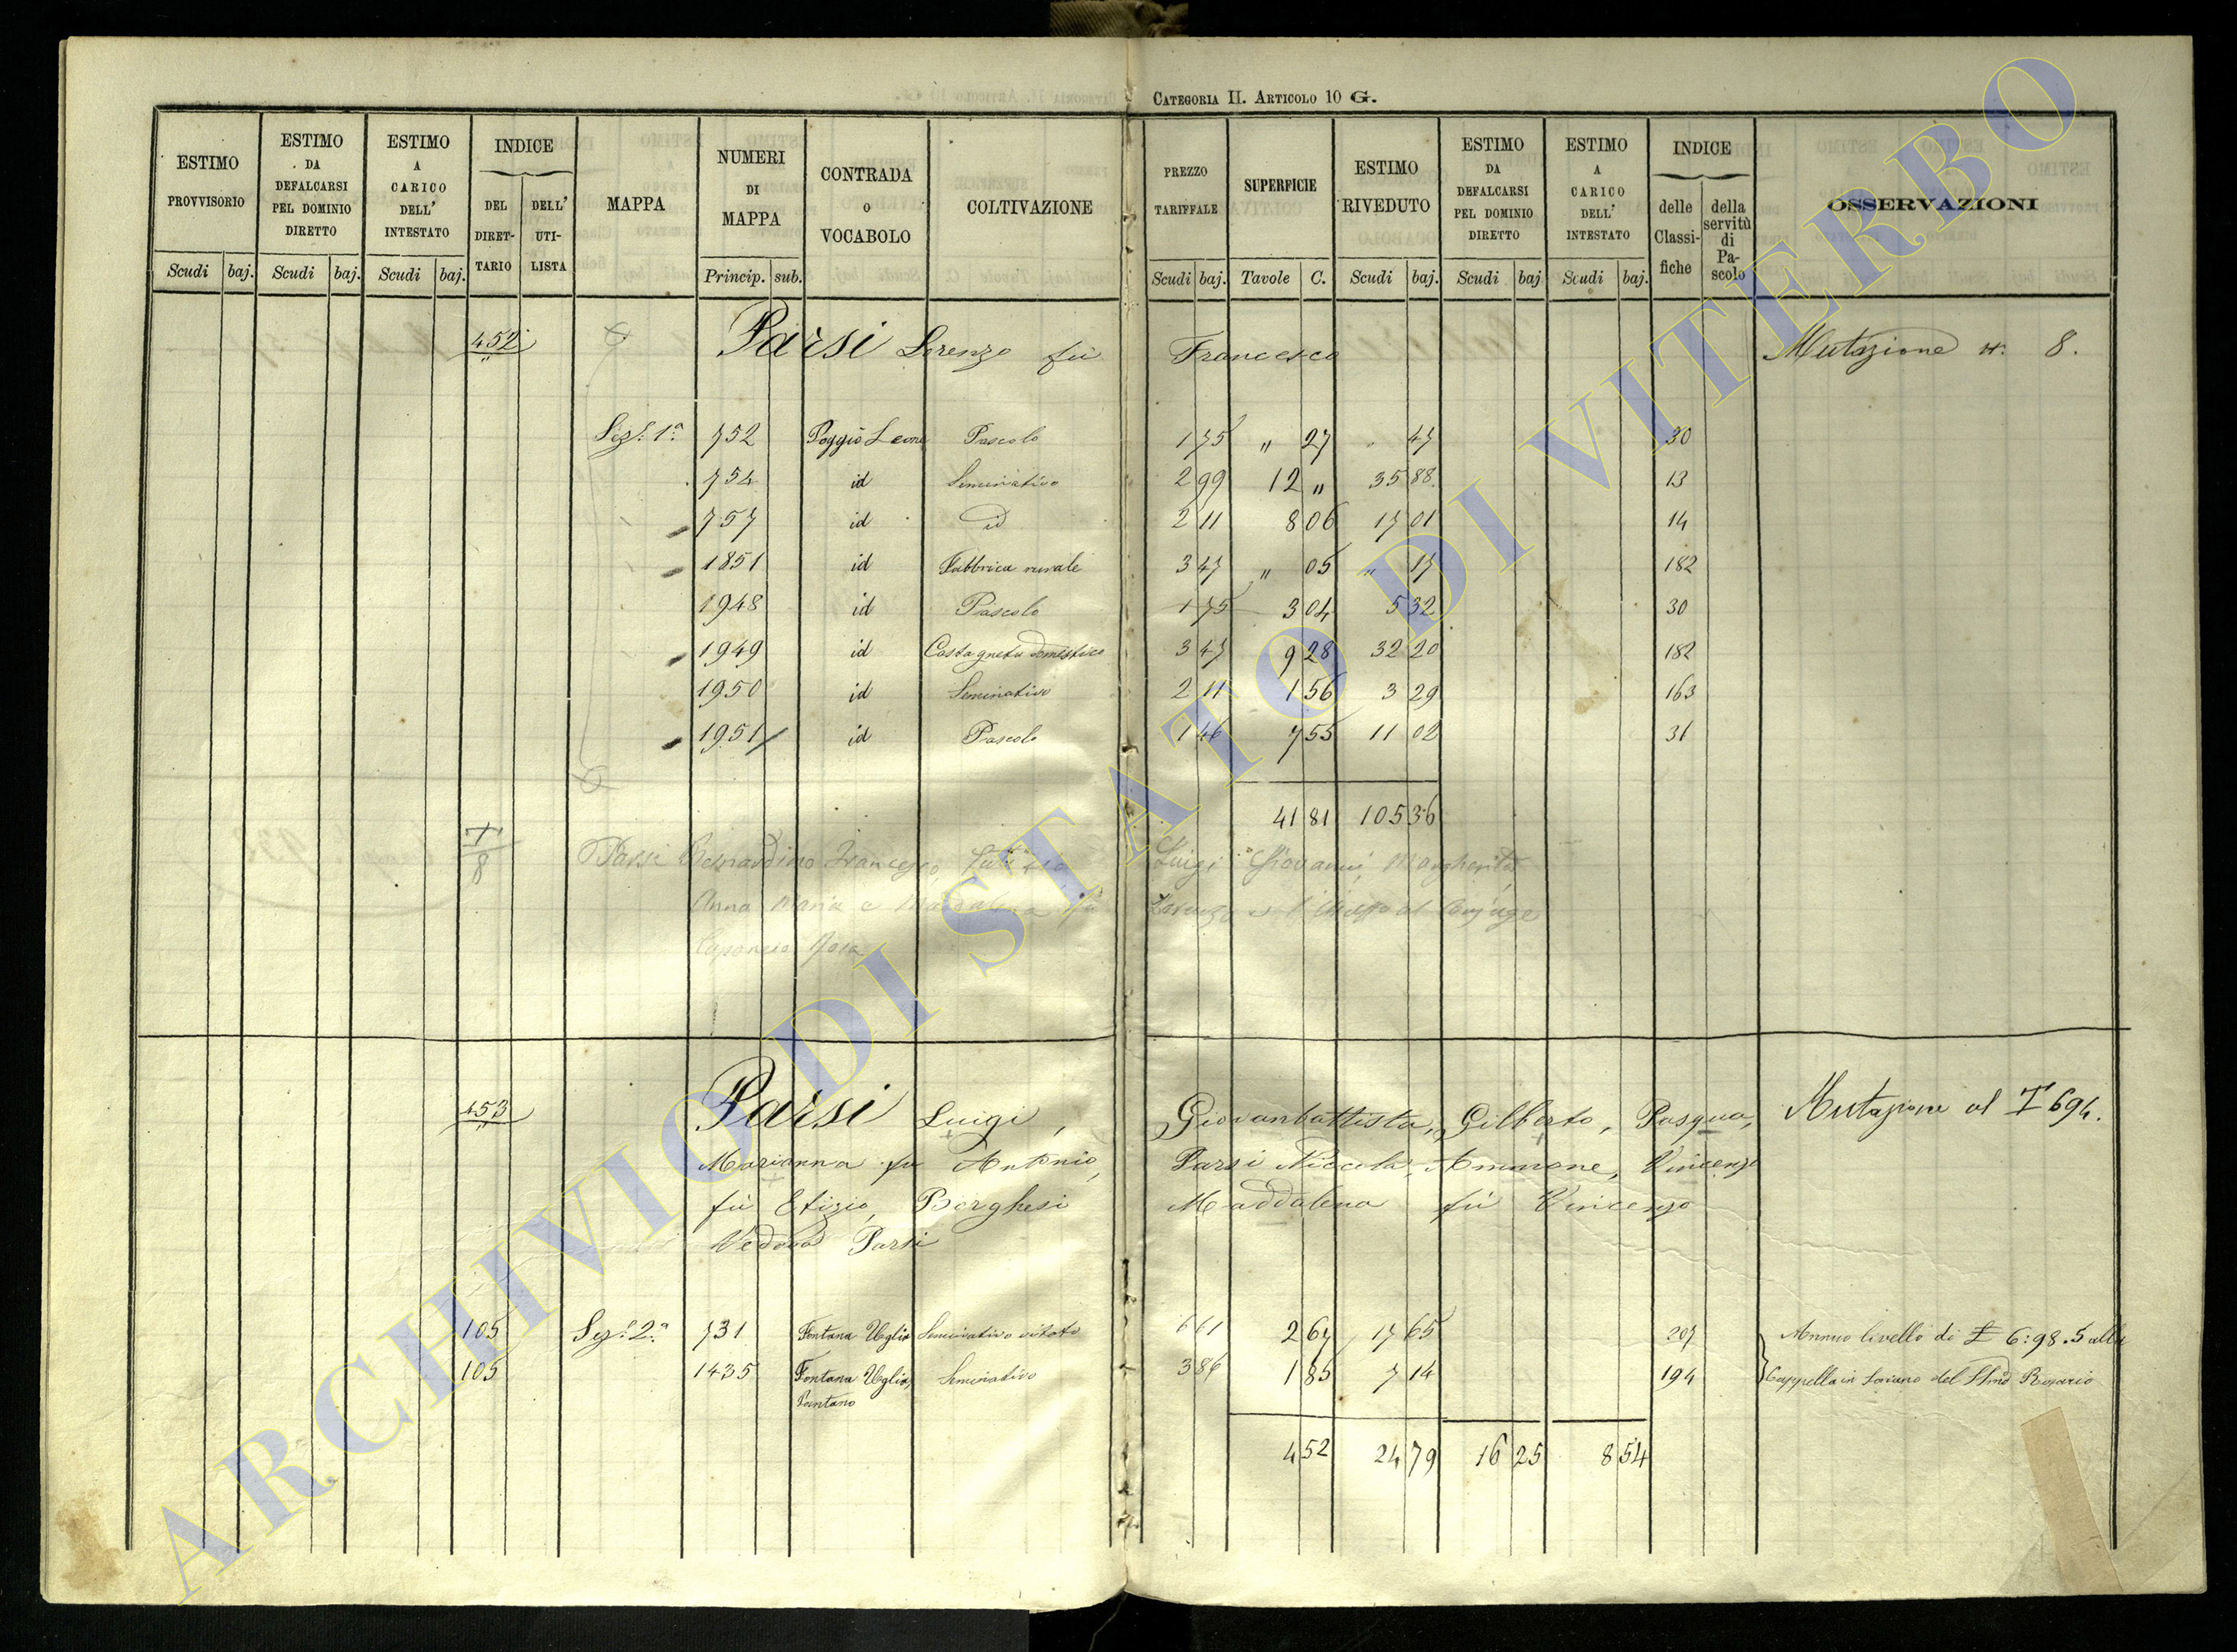 CATEGORIA II. ARTICOLO 10 G.
ESTIMO PROVVISORIO Scudi baj. ESTIMO DA DEFALCARSI PEL DOMINIO DIRETTO Scudi baj. ESTIMO A CARICO DELL' INTESTATO Scudi baj. INDICE DEL DIRETTARIO DELL' UTILISTA MAPPA NUMERI DI MAPPA Princip. sub. CONTRADA O VOCABOLO COLTIVAZIONE
PREZZO TARIFFALE Scudi baj. SUPERFICIE Tavole C. ESTIMO RIVEDUTO Scudi baj. ESTIMO DA DEFALCARSI PEL DOMINIO DIRETTO Scudi baj ESTIMO A CARICO DELL' INTESTATO Scudi baj. INDICE delle Classifiche della servitù di Pascolo OSSERVAZIONI
452 Parsi Lorenzo fù Francesco Mutazione N. 8.
Sez.e 1a 752 Poggio Leone Pascolo 1 75 " 27 " 47 30
754 id Seminativo 2 99 12 " 35 88 13
757 id id 2 11 8 06 17 01 14
1851 id Fabbrica rurale 3 47 " 05 " 17 182
1948 id Pascolo 1 75 3 04 5 32 30
1949 id Castagneto domestico 3 47 9 28 32 20 182
1950 id Seminativo 2 11 1 56 3 29 163
1951 id Pascolo 1 46 7 55 11 02 31
41 81 105 36
8 Parsi Bernardino Francesco, Luigi Giovanni, Margherita
Anna Maria e Maddalena fù Lorenzo
Rosa
453 Parsi Luigi, Giovanbattista, Gilberto, Pasqua, Mutazione al T 694.
Marianna fu Antonio, Parsi Niccola, Ammone, Vincenzo
fù Etizio, Borghesi Maddalena fù Vincenzo
Vedova Parsi
105 Sez.e 2a 731 Fontana Uglia Seminativo vitato 6 61 2 67 17 65 207 Annuo livello di £ 6:98.5 alla
105 1435 Fontana Uglia, Pantano Seminativo 3 86 1 85 7 14 194 Cappella in Soriano del SSmo Rosario
4 52 24 79 16 25 8 54
ARCHIVIO DI STATO DI VITERBO